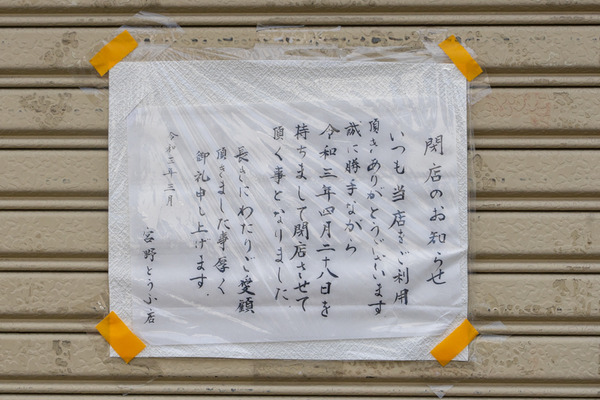 閉店のお知らせ
いつも当店をご利用
頂きありがとうございます
誠に勝手ながら
令和三年四月二十八日を
持ちまして閉店させて
頂く事となりました。
長きにわたりご愛顧
頂きました事厚く
御礼申し上げます。
令和三年三月
宮野とうふ店